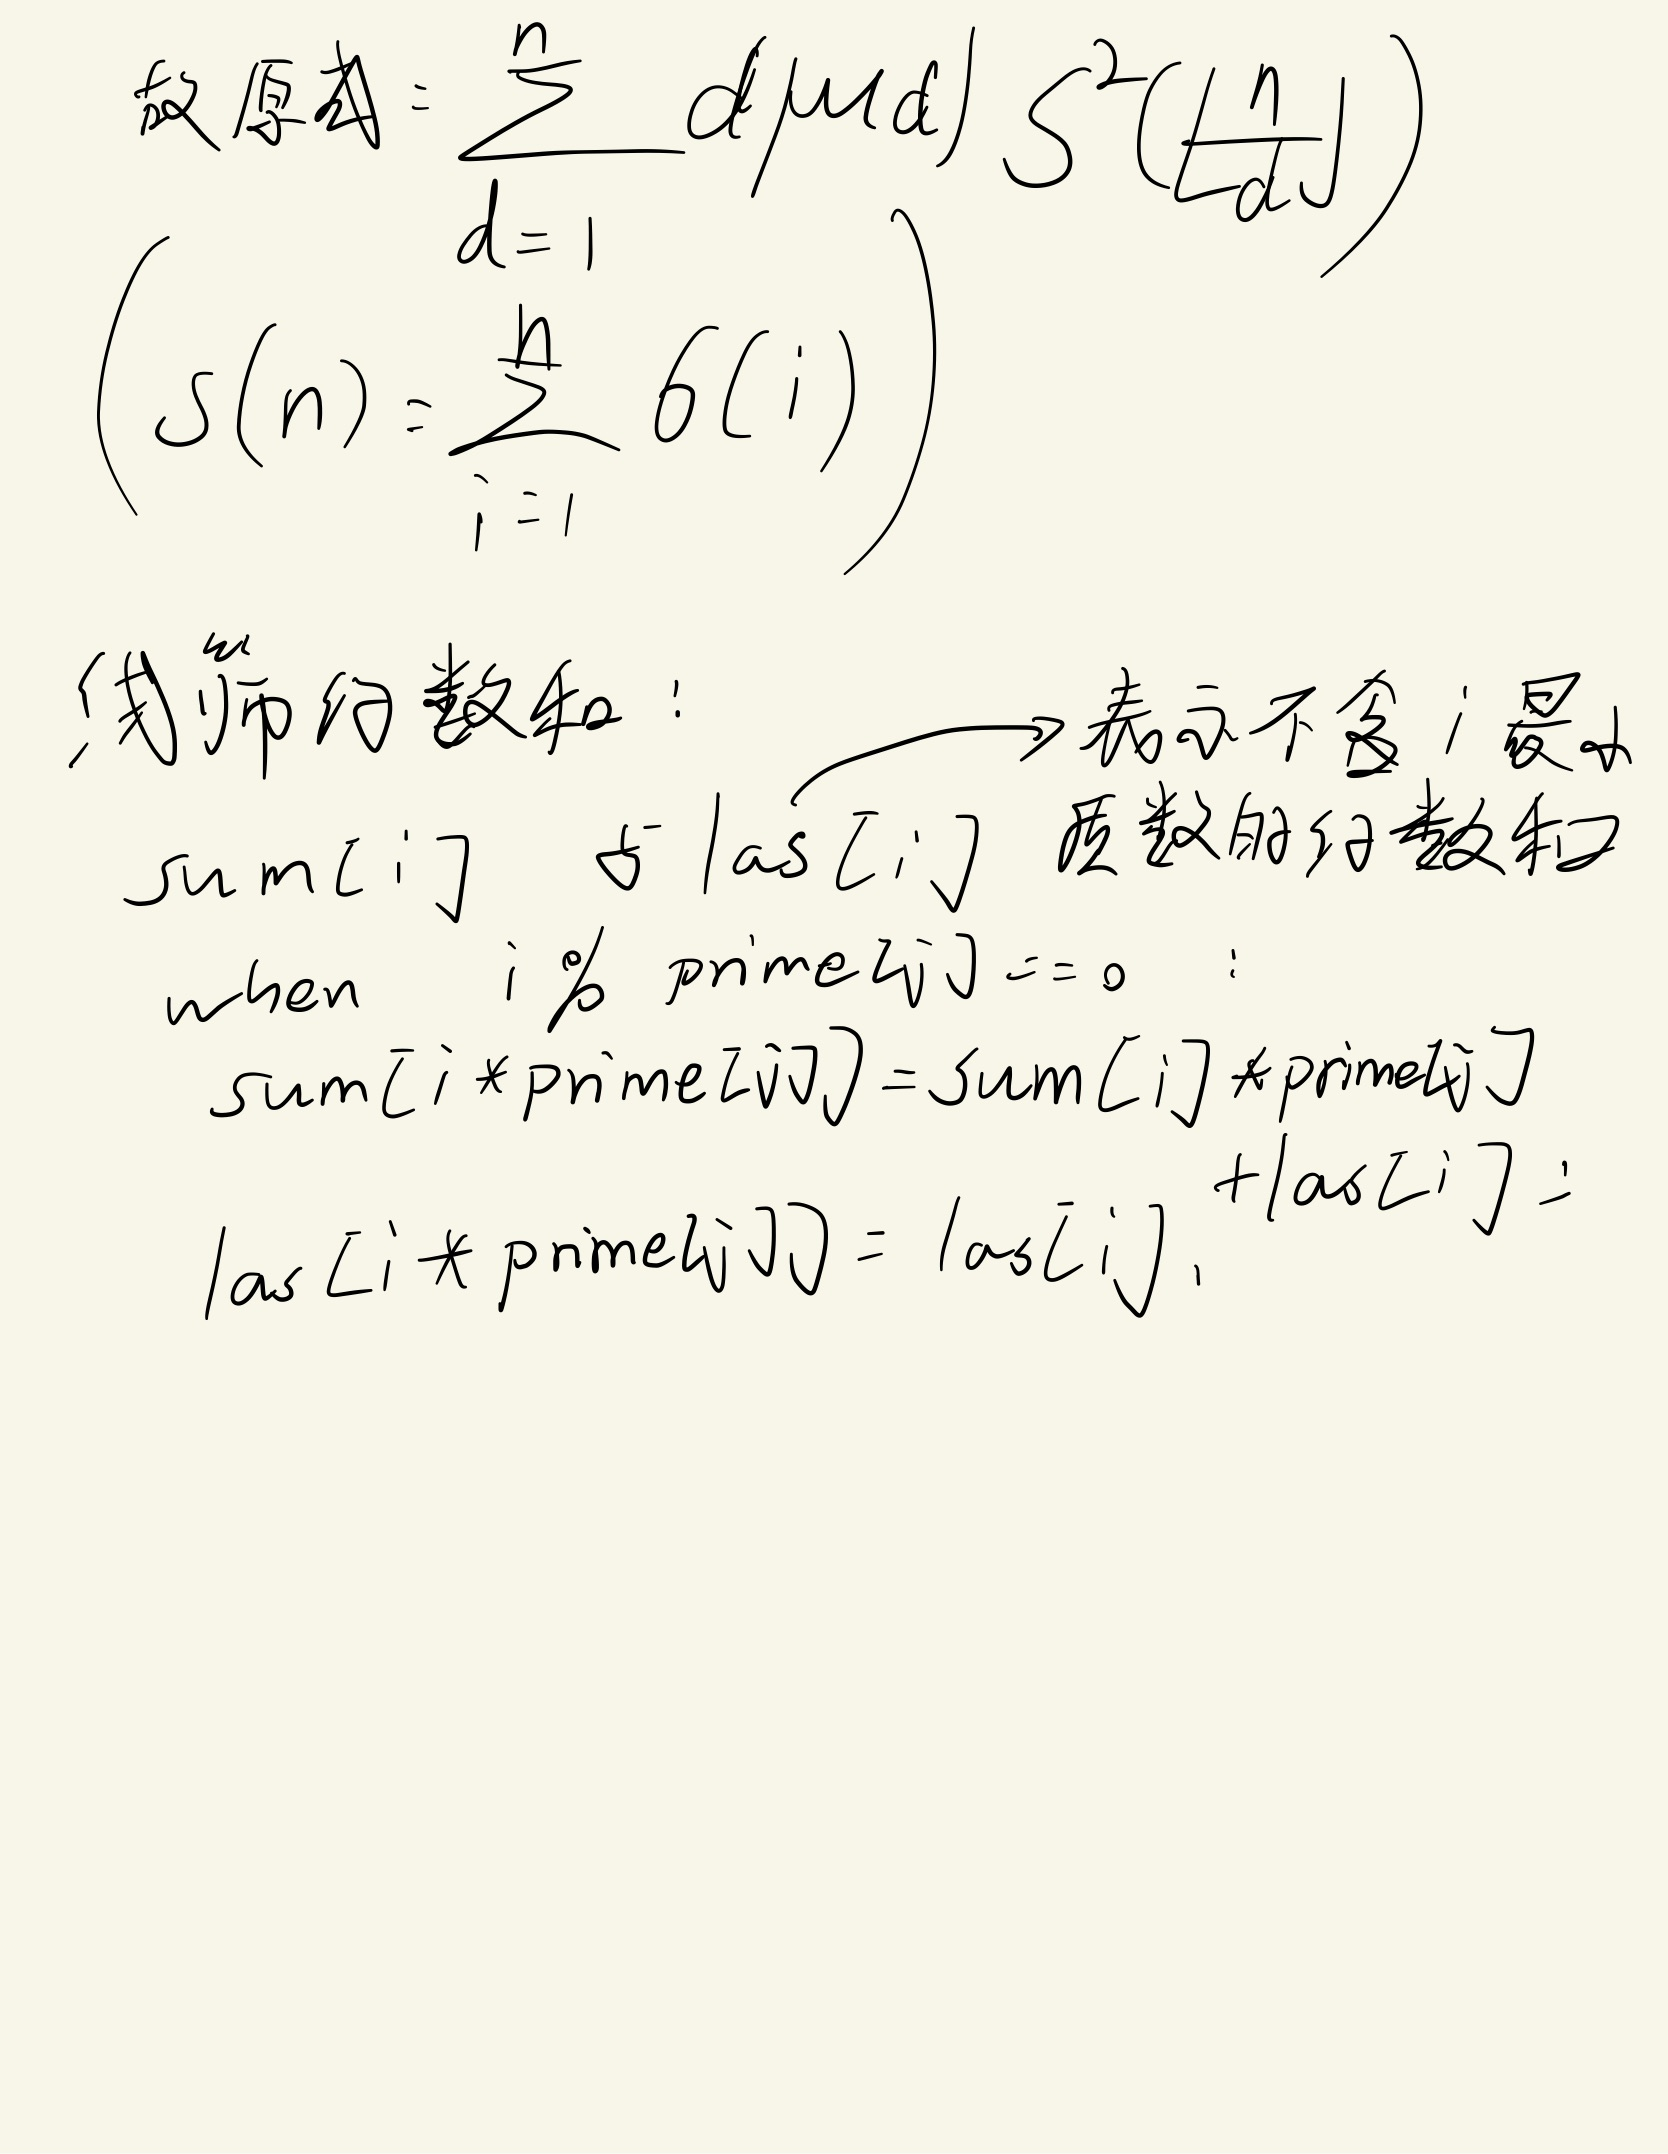 故原式 = ∑_{d=1}^{n} dμ(d) S²(⌊n/d⌋)
(S(n) = ∑_{i=1}^{n} σ(i))
线筛约数和:
表示不含 i 最小
sum[i] 与 las[i] 质数的约数和
when i % prime[j] == 0 :
sum[i * prime[j]] = sum[i] * prime[j]
+ las[i] ;
las[i * prime[j]] = las[i] ,